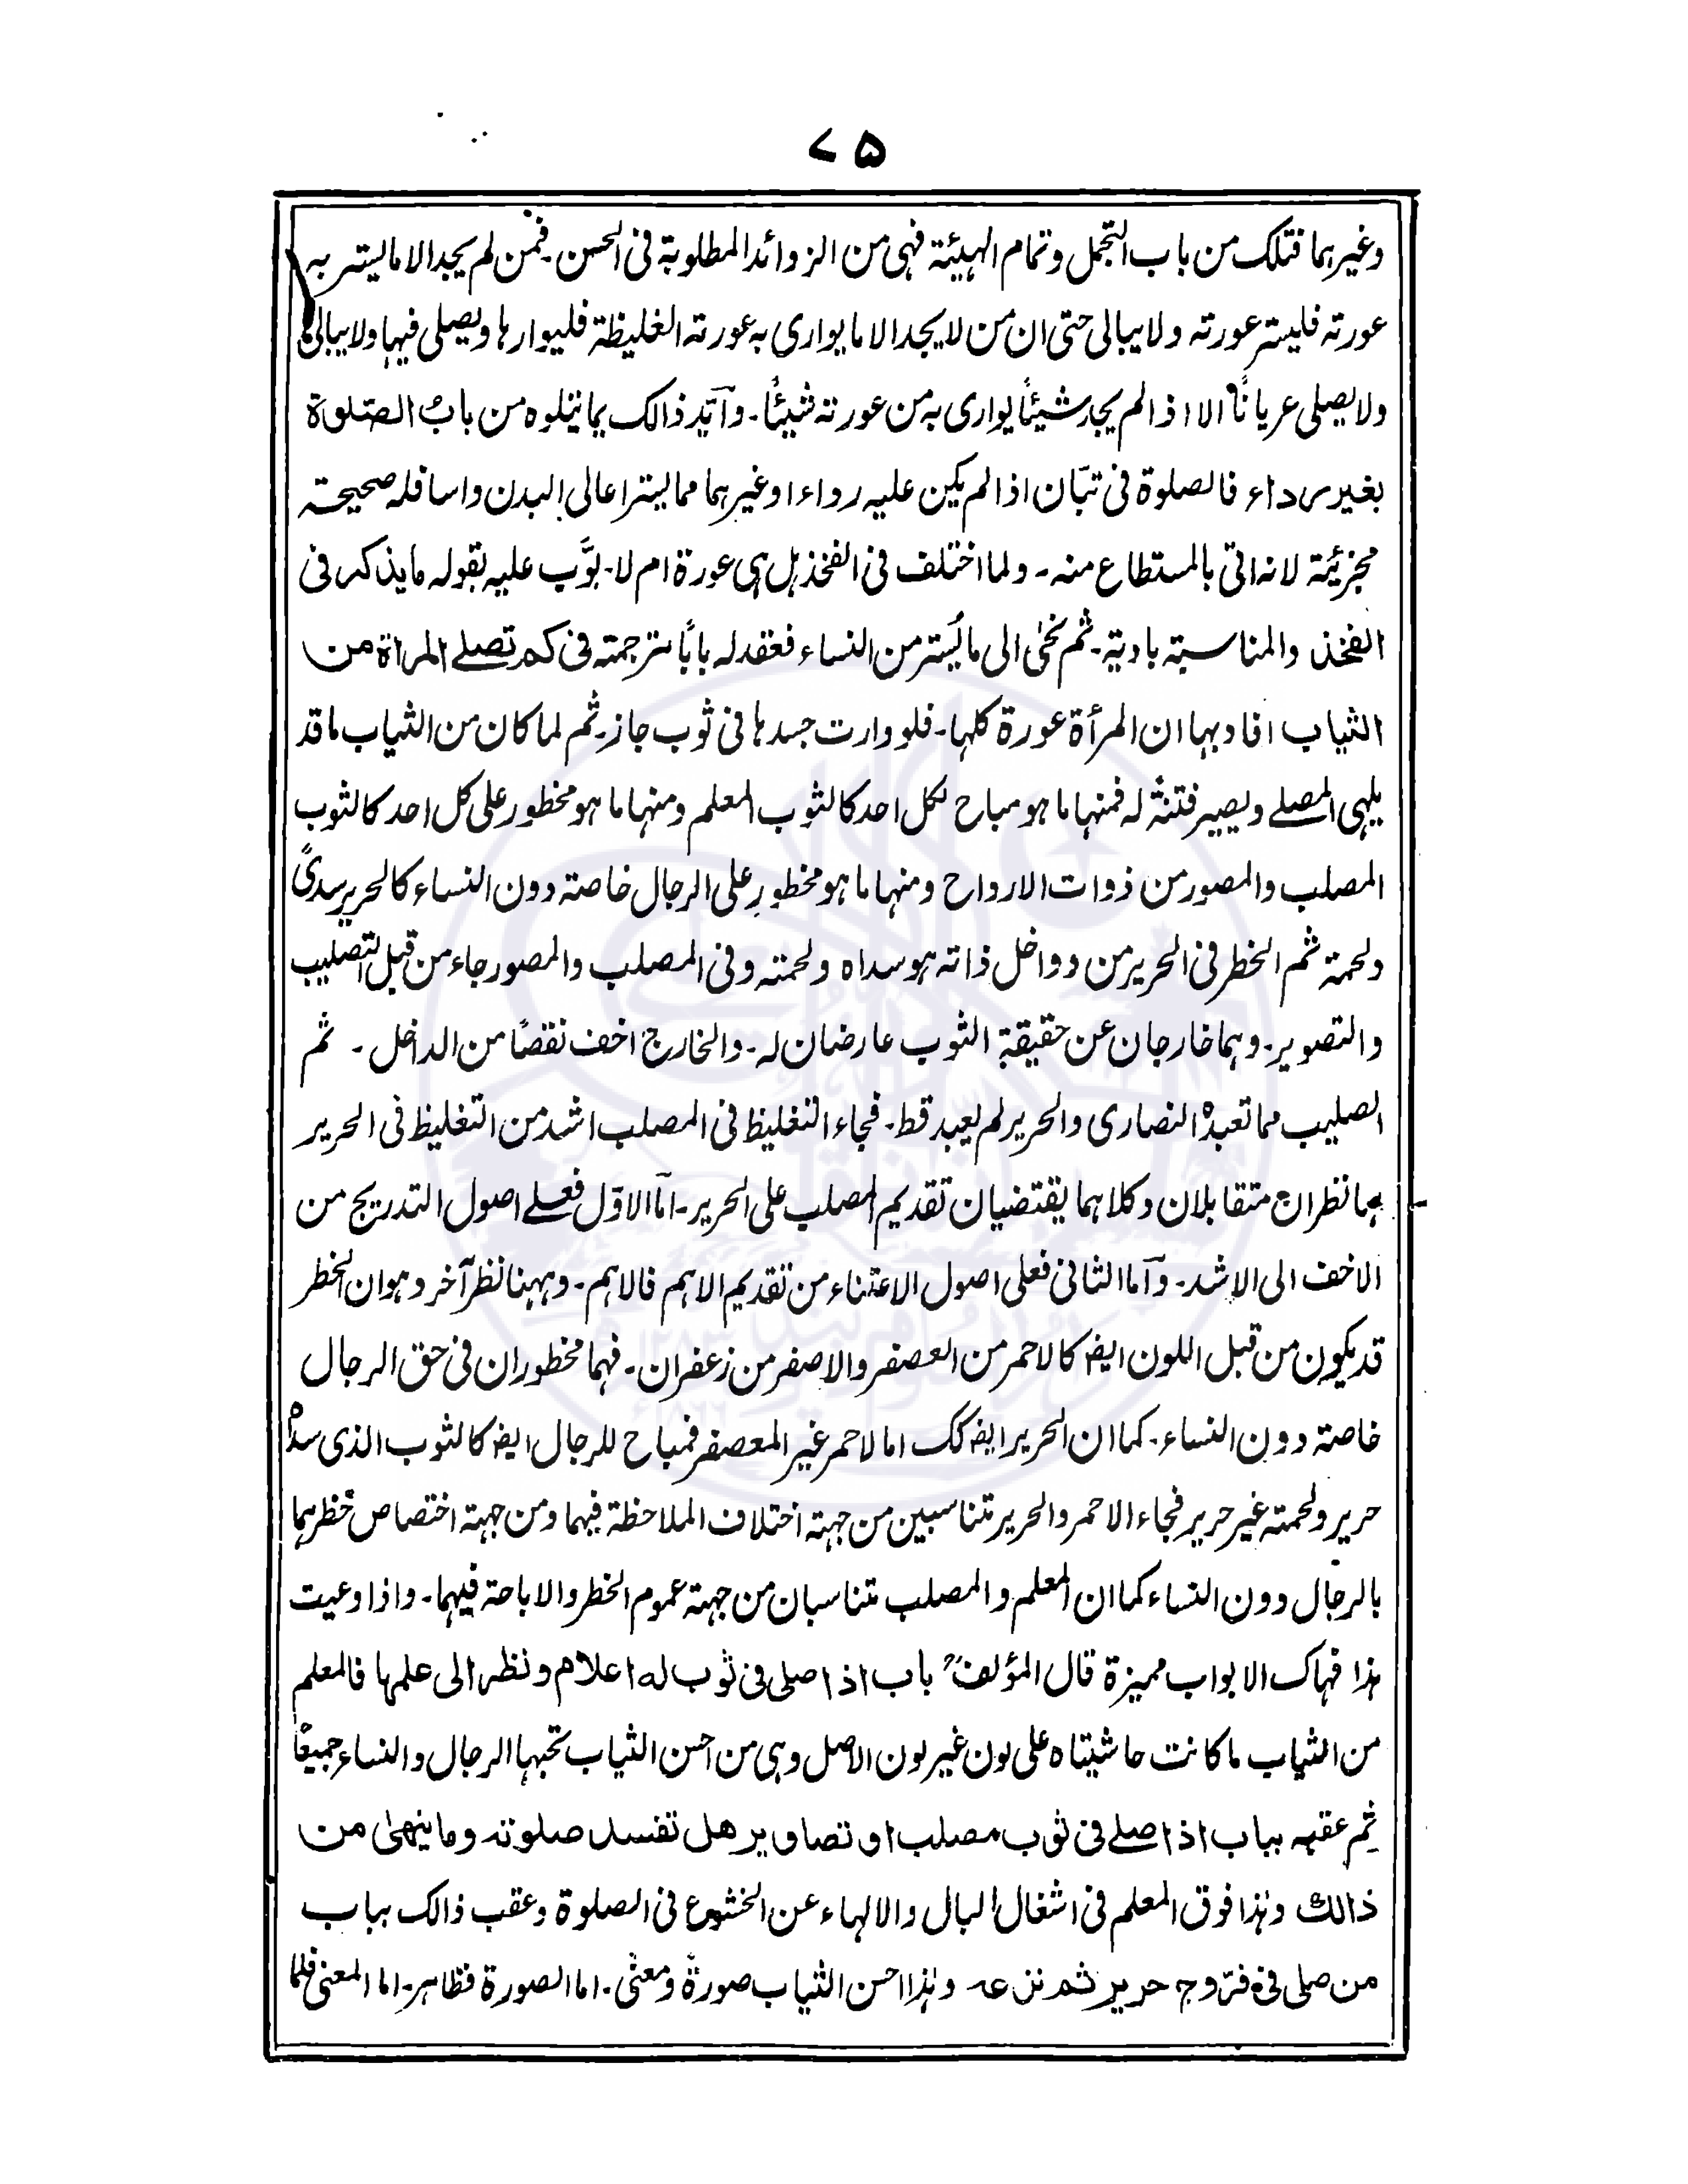 ۷۵
وغيرهما فتلك من باب التجمل وتمام الهيئة فهى من الزوائد المطلوبة فى الحسن۔ فمن لم يجد الا ما ليستر به
عورته فليستر عورته ولا يبالى حتى ان من لا يجد الا ما يوارى به عورته الغليظة فليوارها ويصلى فيها ولا يبالى
ولا يصلى عرياناً الا اذا لم يجد شيئًا يوارى به من عورته شيئًا۔ وآيّد ذالك بما نيلوه من باب الصّلوة
بغير رداء فالصلوة فى تبّان اذا لم يكين عليه رداء او غيرهما مما ليستر اعالى البدن واسافله صحيحة
مجزئية لانه اتى بالمستطاع منه۔ ولما اختلف فى الفخذ هل هى عورة ام لا۔ بوَّب عليه بقوله ما يذكر فى
الفخذ والمناسبة بادية۔ ثم نحٰى الى ما يُستر من النساء فعقد له بابًا ترجمته فى كم تصلے المرأة من
الثياب افاد بها ان المرأة عورة كلها۔ فلو وارت جسدها فى ثوب جاز۔ ثم لما كان من الثياب ما قد
يلهى المصلے ويصير فتنة له فمنها ما هو مباح لكل احد كالثوب المعلم ومنها ما هو محظور على كل احد كالثوب
المصلب والمصور من ذوات الارواح ومنها ما هو مخطور على الرجال خاصة دون النساء كالحرير سدىً
ولحمة ثم الخطر فى الحرير من دواخل ذاته هو سداه ولحمته وفى المصلب والمصور جاء من قبل التصليب
والتصوير۔ وهما خارجان عن حقيقة الثوب عارضان له۔ والخارج اخف نقصًا من الداخل۔ ثم
الصليب مما تعبدهٗ النصارى والحرير لم يعبد قط۔ فجاء التغليظ فى المصلب اشد من التغليظ فى الحرير
هما نظران متقابلان وكلاهما يقتضيان تقديم المصلب على الحرير۔ امّا الاوّل فعلے اصول التدريج من
الاخف الى الاشد۔ وآما الثانى فعلى اصول الاعتناء من تقديم الاهم فالاهم۔ وههنا نظر آخر وهو ان الخطر
قد يكون من قبل اللون ايضؔ كالاحمر من العصفر والاصفر من زعفران۔ فهما مخطوران فى حق الرجال
خاصة دون النساء۔ كما ان الحرير ايضؔ كك اما لاحمر غير المعصفر فمباح للرجال ايضؔ كالثوب الذى سداهٗ
حرير ولحمته غير حرير فجاء الاحمر والحرير متناسبين من جهة اختلاف الملاحظة فيهما ومن جهة اختصاص خطرهما
بالرجال دون النساء كما ان المعلم والمصلب متناسبان من جهة عموم الخطر والاباحة فيهما۔ واذا وعيت
هذا فهاك الابواب مميزة قال المؤلفؒ باب اذا صلى فى ثوب له اعلام ونظر الى علمها فالمعلم
من الثياب ما كانت حاشيتاه على لون غير لون الاصل وهى من احسن الثياب تحبها الرجال والنساء جميعًا
ثم عقبه بباب اذا صلے فى ثوب مصلب او تصاوير هل تفسد صلوته وما ينهىٰ من
ذالك وهٰذا فوق المعلم فى اشغال البال والالهاء عن الخشوع فى الصلوة وعقب ذالك بباب
من صلى فى فرّوج حرير ثم نزعه وهٰذا احسن الثياب صورةً ومعنًى۔ اما الصورة فظاهر۔ اما المعنى فلما